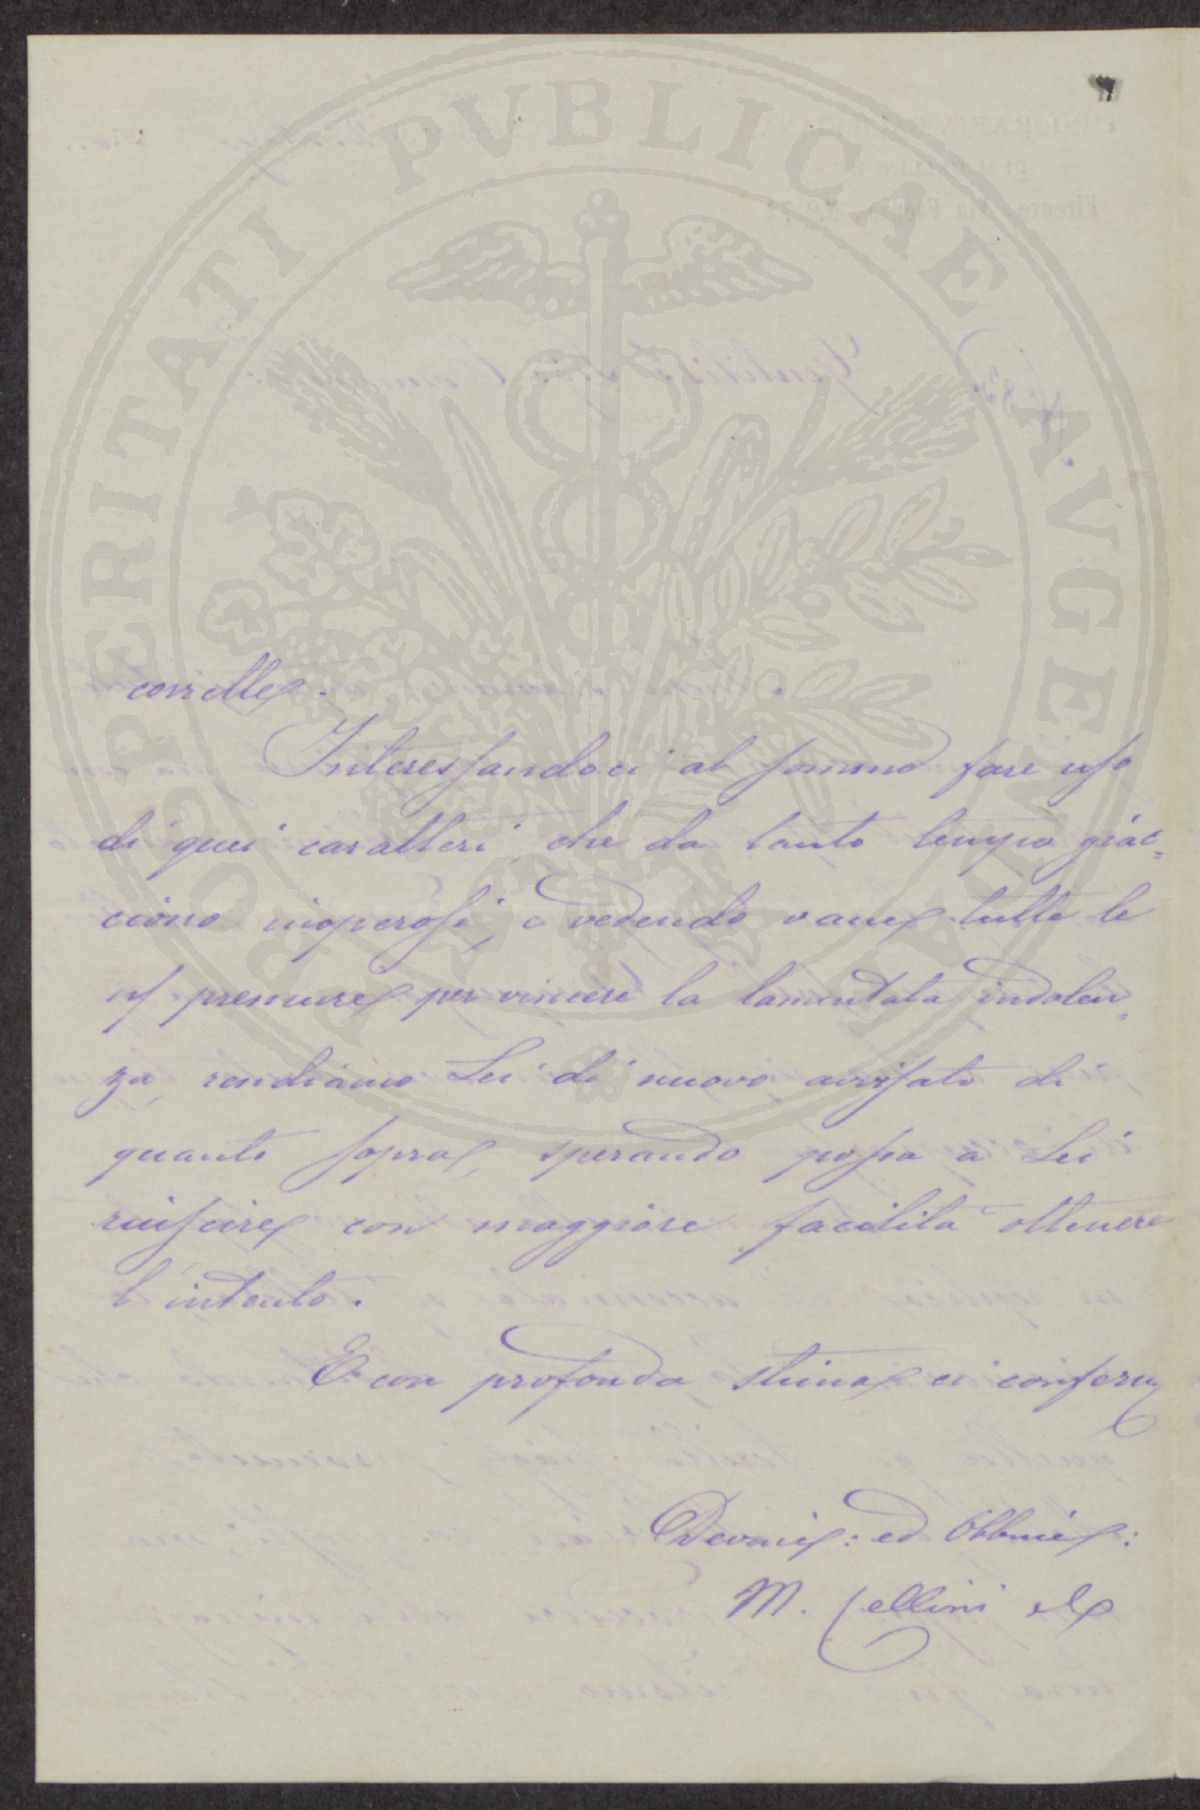 PROSPERITATI PUBLICAE AVGENDAE
corrette.
Interessandoci al sommo fare uso
di quei caratteri che da tanto tempo giac=
ciono inoperosi, e vedendo vane tutte le
ns/ premure per vincere la lamentata indolen=
za, rendiamo Lei di nuovo avvisato di
quanto sopra, sperando possa a Lei
riuscire con maggiore facilità ottenere
l'intento.
E con profonda stima ci conferm
Devmi: ed Obbmi:
M. Cellini e C